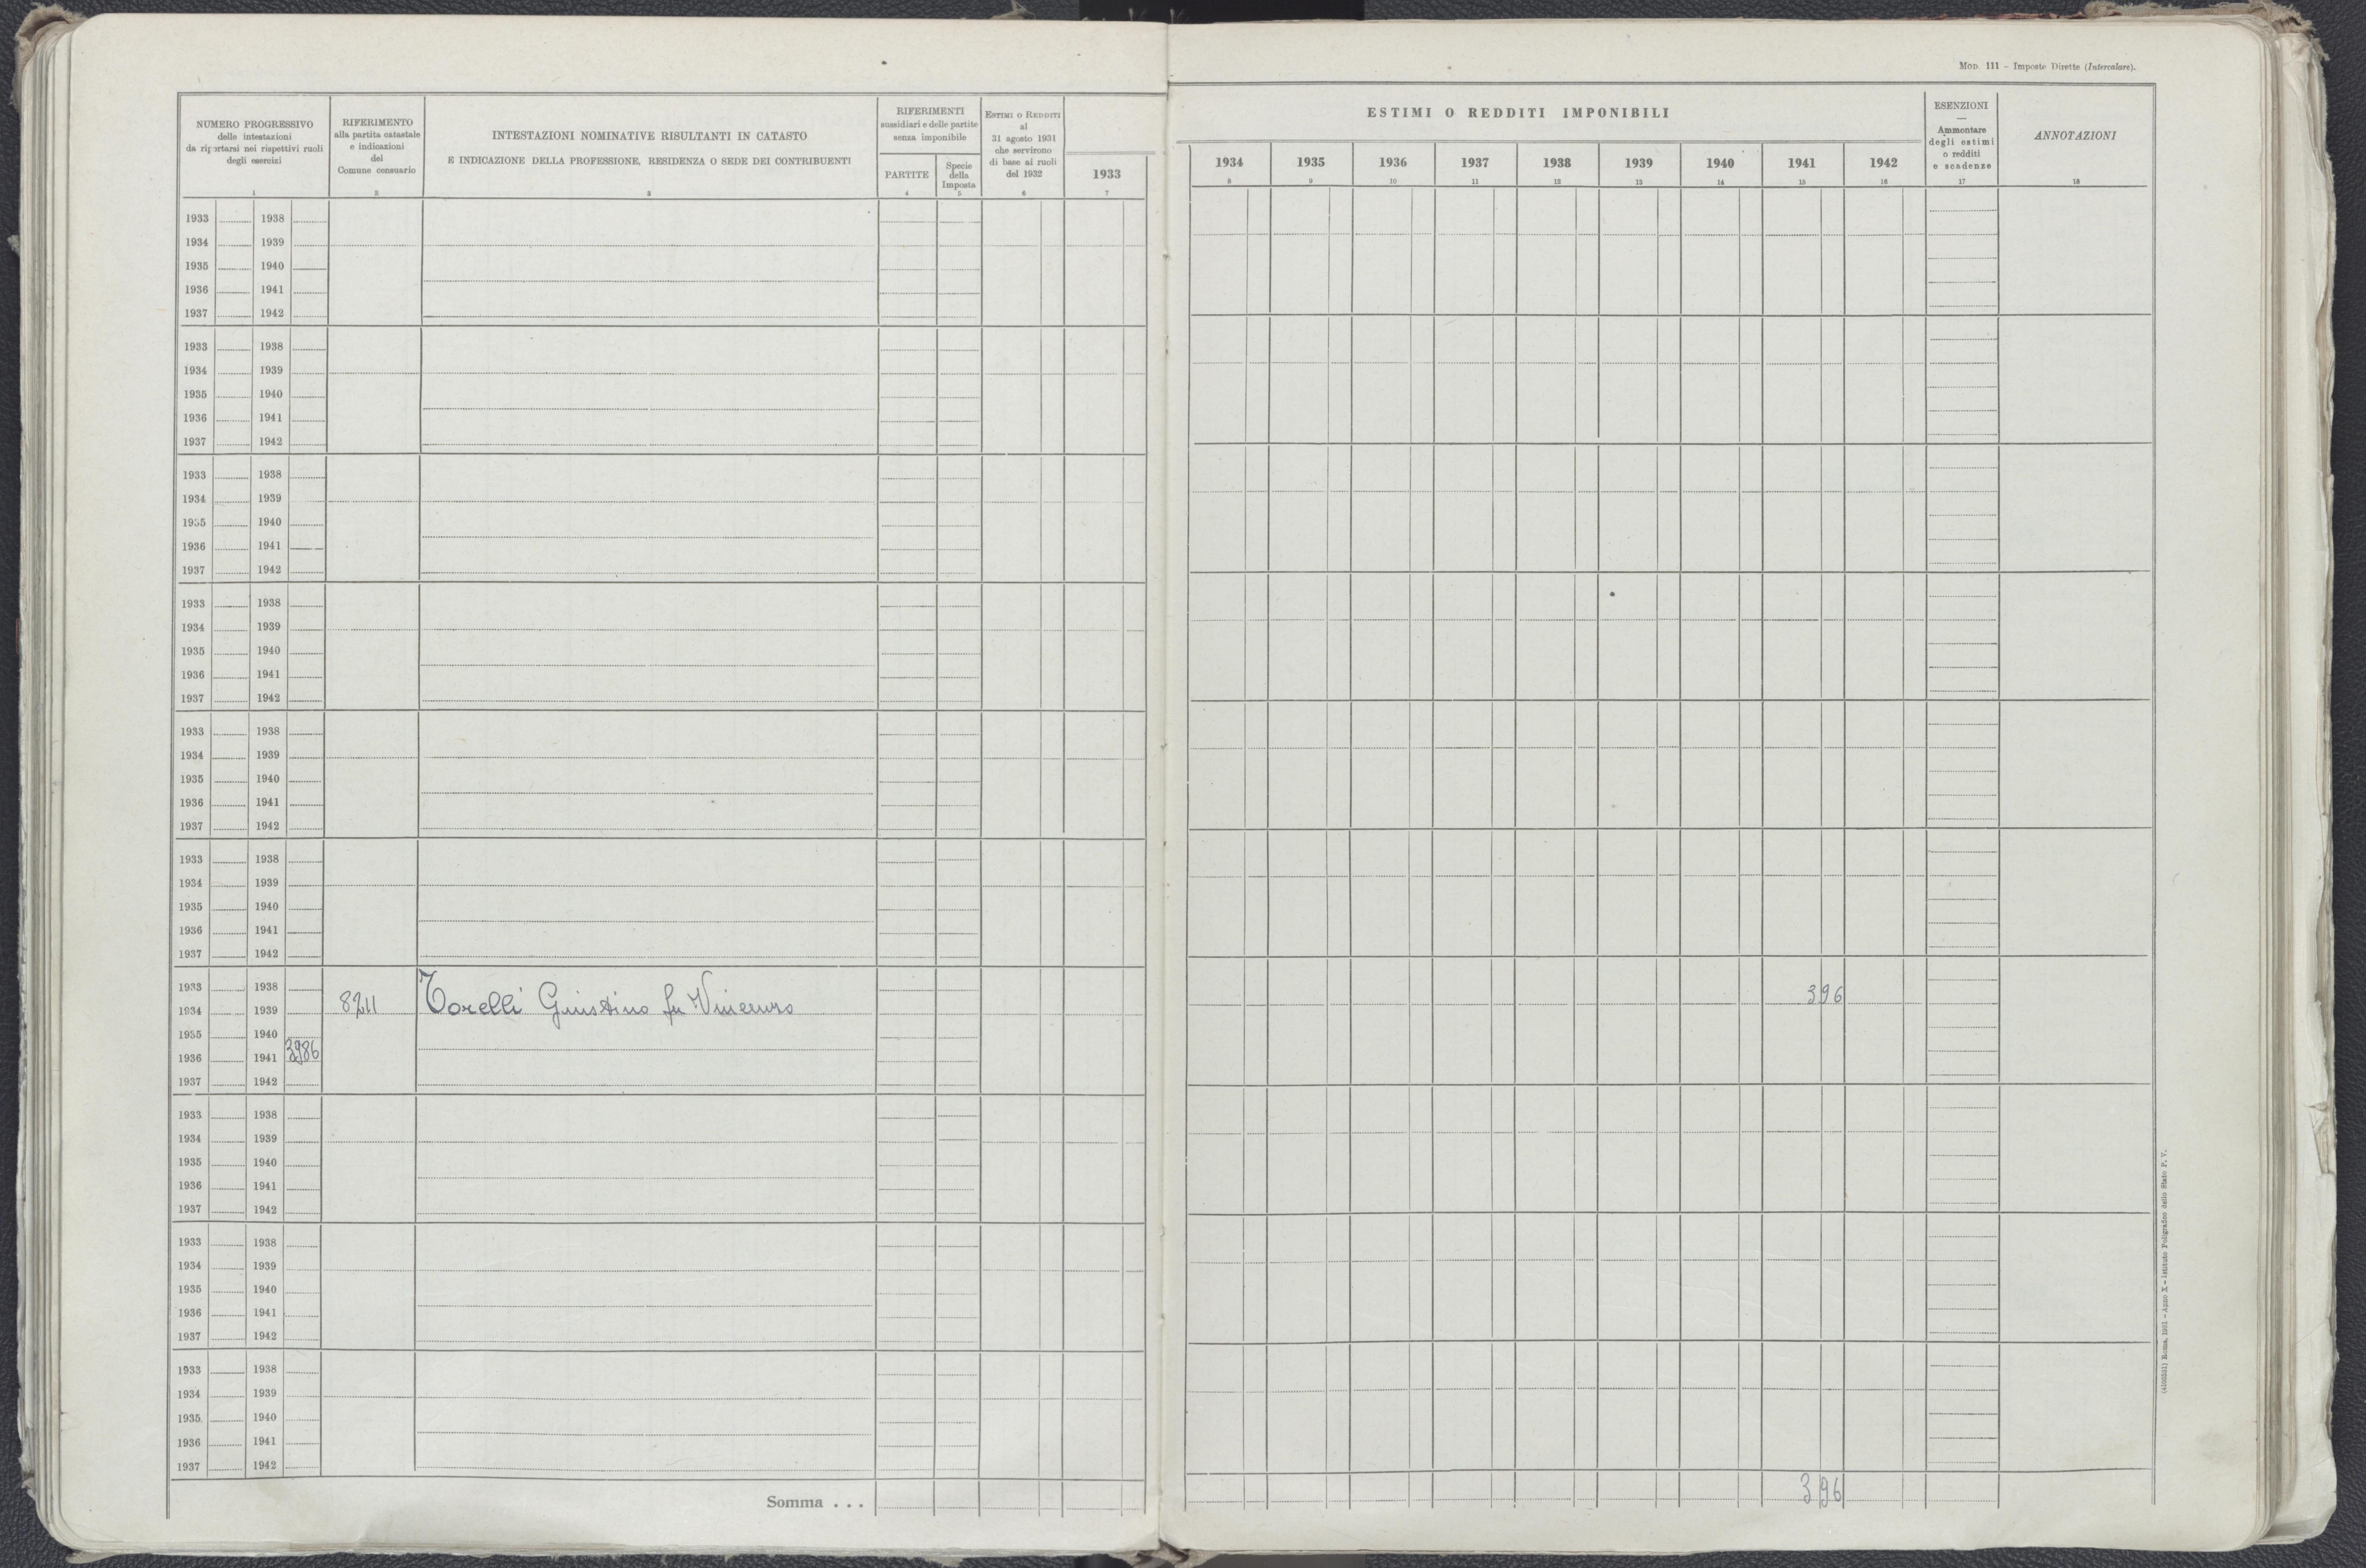 Mod. 111 – Imposte Dirette (Intercalare).
NUMERO PROGRESSIVO
delle intestazioni
da riportarsi nei rispettivi ruoli
degli esercizi
1
RIFERIMENTO
alla partita catastale
e indicazioni
del
Comune censuario
2
INTESTAZIONI NOMINATIVE RISULTANTI IN CATASTO
E INDICAZIONE DELLA PROFESSIONE, RESIDENZA O SEDE DEI CONTRIBUENTI
3
RIFERIMENTI
sussidiari e delle partite
senza imponibile
PARTITE
4
Specie
della
Imposta
5
Estimi o Redditi
al
31 agosto 1931
che servirono
di base ai ruoli
del 1932
6
ESTIMI O REDDITI IMPONIBILI
1933 1934 1935 1936 1937 1938 1939 1940 1941 1942
7 8 9 10 11 12 13 14 15 16
ESENZIONI
—
Ammontare
degli estimi
o redditi
e scadenze
17
ANNOTAZIONI
18
1933 1938
1934 1939
1935 1940
1936 1941
1937 1942
1933 1938
1934 1939
1935 1940
1936 1941
1937 1942
1933 1938
1934 1939
1935 1940
1936 1941
1937 1942
1933 1938
1934 1939
1935 1940
1936 1941
1937 1942
1933 1938
1934 1939
1935 1940
1936 1941
1937 1942
1933 1938
1934 1939
1935 1940
1936 1941
1937 1942
1933 1938
1934 1939 8211 Torelli Giustino fu Vincenzo 396
1935 1940
1936 1941 3986
1937 1942
1933 1938
1934 1939
1935 1940
1936 1941
1937 1942
1933 1938
1934 1939
1935 1940
1936 1941
1937 1942
1933 1938
1934 1939
1935 1940
1936 1941
1937 1942
Somma . . . 396
Roma, 1931 – Anno X – Istituto Poligrafico dello Stato P. V.